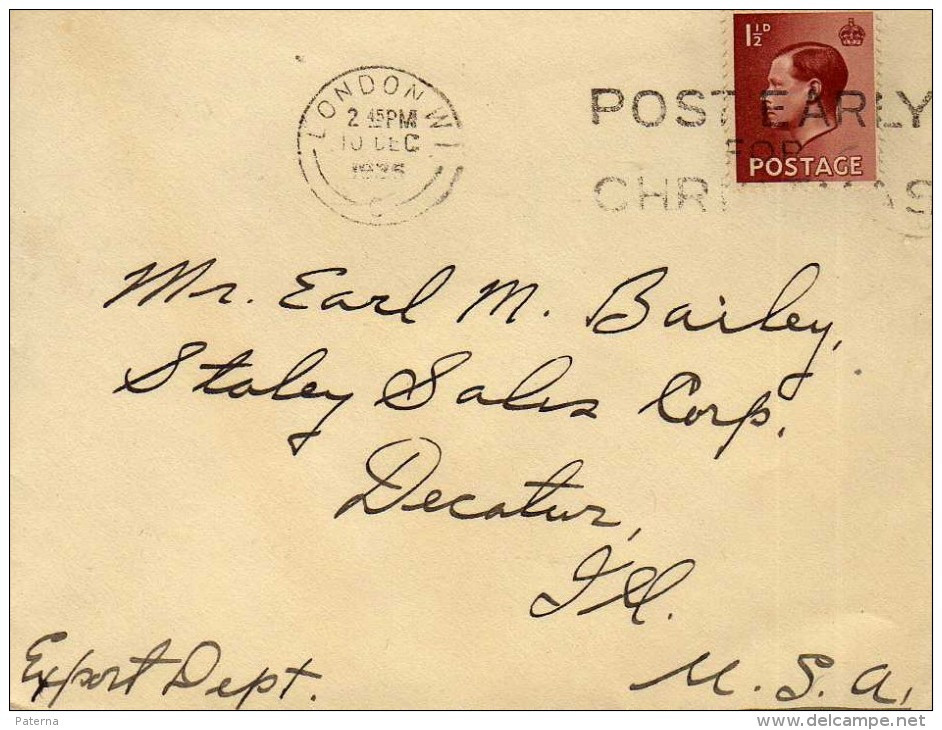 1½D
LONDON W1
2 45 PM
10 DEC
C
POST EARLY
FOR
CHRISTMAS
POSTAGE
Mr. Earl M. Bailey,
Staley Sales Corp.
Decatur,
Ill.
Export Dept.
U.S.A.
Paterna
www.delcampe.net